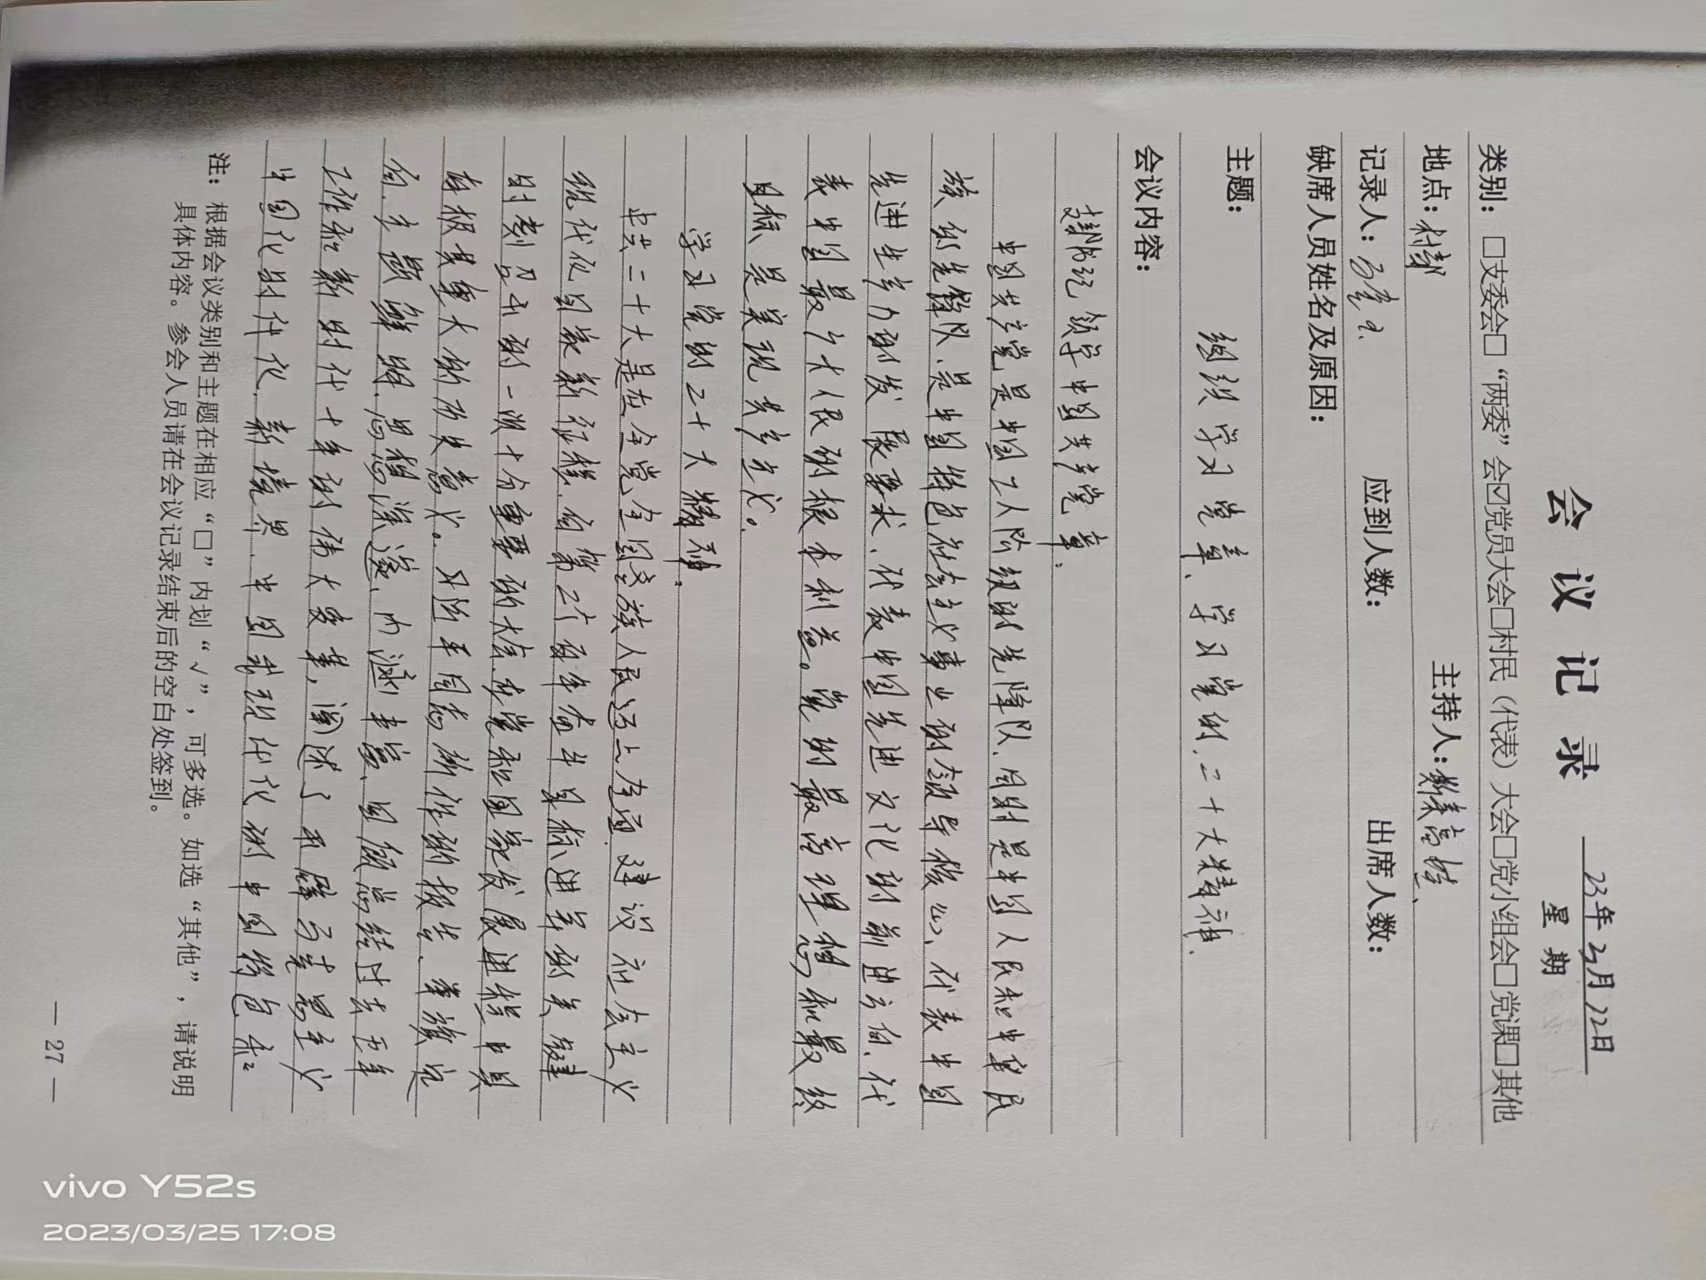 会议记录
23年3月22日
星期
类别：□支委会□“两委”会☑党员大会□村民（代表）大会□党小组会□党课□其他
地点：村部 主持人：
记录人： 应到人数： 出席人数：
缺席人员姓名及原因：
主题： 组织学习党章、学习党的二十大精神.
会议内容：
领学中国共产党党章.
中国共产党是中国工人阶级的先锋队、同时是中国人民和中华民
族的先锋队、是中国特色社会主义事业的领导核心、代表中国
先进生产力的发展要求、代表中国先进文化的前进方向、代
表中国最广大人民的根本利益。党的最高理想和最终
目标是实现共产主义。
学习党的二十大精神.
中共二十大是在全党全国各族人民迈上全面建设社会主义
现代化国家新征程、向第二个百年奋斗目标进军的关键
时刻召开的一次十分重要的大会、在党和国家发展进程中具
有极其重大的历史意义。习近平同志所作的报告、举旗定
向、主题鲜明、思想深邃、内涵丰富、回顾总结过去五年
工作和新时代十年的伟大变革，阐述了开辟马克思主义
中国化时代化新境界、中国式现代化的中国特色和
注：根据会议类别和主题在相应“□”内划“√”，可多选。如选“其他”，请说明
具体内容。参会人员请在会议记录结束后的空白处签到。
— 27 —
vivo Y52s
2023/03/25 17:08